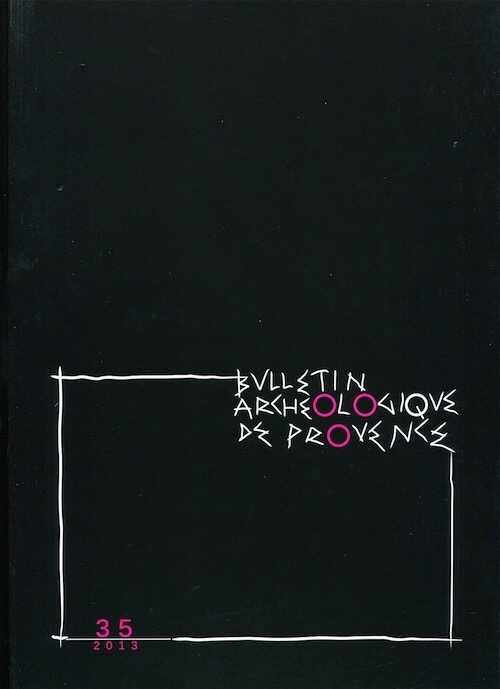 BVLLETIN
ARCHEOLOGIQVE
DE PROVENCE
35
2013